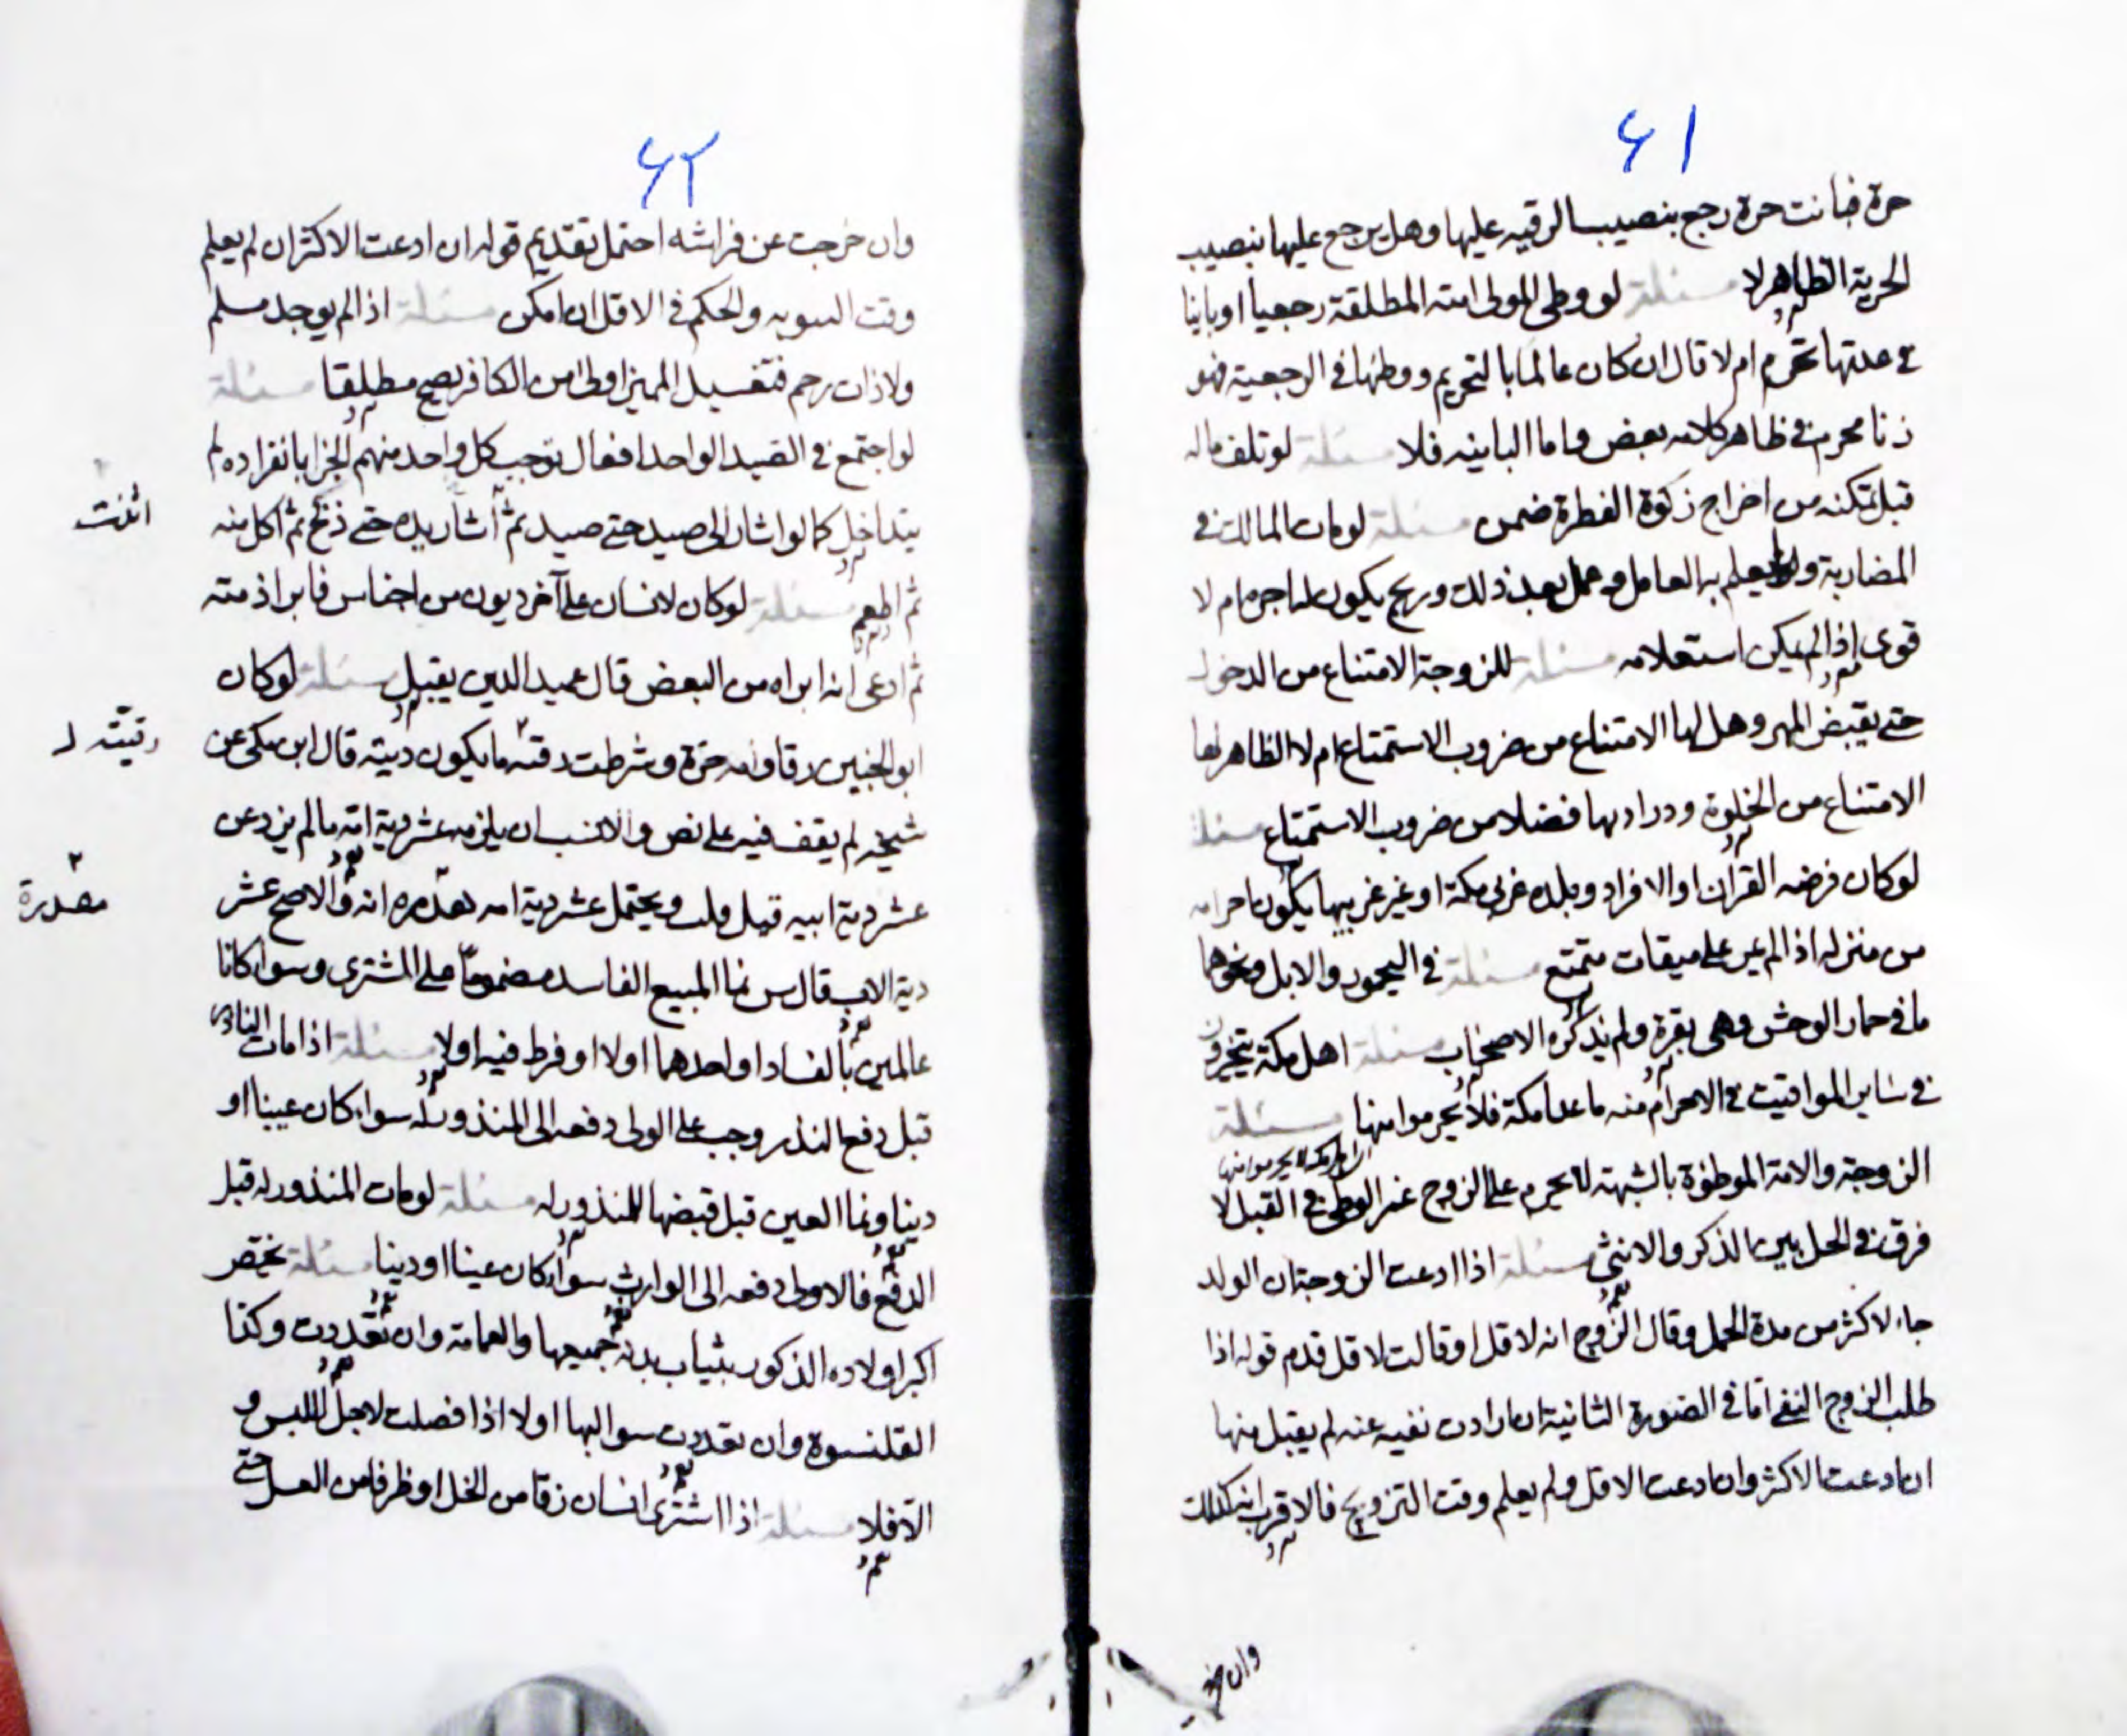 ۶۱
حرة فبانت حرة رجع بنصيب الرقيه عليها وهل يرجع عليها بنصيب
الحرية الظاهر لا مسئلة لو وطى المولى امته المطلقة رجعيا او باينا
في عدتها تحرم ام لا قال ان كان عالما بالتحريم ووطئها في الرجعية فهو
زنا محرم في ظاهر كلامه بعض واما الباينه فلا مسئلة لو تلف ماله
قبل تمكنه من اخراج زكوة الفطرة ضمن مسئلة لو مات المالك في
المضاربة ولم يعلم به العامل وعمل بعد ذلك وربح يكون له اجره ام لا
قوى اذا لم يكن استعلامه مسئلة للزوجة الامتناع من الدخول
حتى يقبض المهر وهل لها الامتناع من ضروب الاستمتاع ام لا الظاهر لها
الامتناع من الخلوة ودرادبها فضلا من ضروب الاستمتاع مسئلة
لو كان فرضه القران او الافراد وبلده غربي مكة او غير غربيها يكون احرامه
من منزله اذا لم يمر على ميقات متمتع مسئلة في اليحمور والابل ونحوهما
ما في حمار الوحش وهى بقرة ولم يذكره الاصحاب مسئلة اهل مكة يتخيرون
في ساير المواقيت في الاحرام منه ما عدا مكة فلا يحرموا منها مسئلة
الزوجة والامة الموطؤة بالشبهة لا يحرم على الزوج غير الوطئ في القبل لا
فرق في الحل بين الذكر والانثى مسئلة اذا ادعت الزوجة ان الولد
جاء لاكثر من مدة الحمل وقال الزوج انه لاقل او قالت لاقل قدم قوله اذا
طلب الزوج النفي اما في الصورة الثانية ان ارادت نفيه عنه لم يقبل منها
ان ادعت الاكثر وان ادعت الاقل ولم يعلم وقت التزويج فالاقرب انه كذلك
وان خر
۶۲
وان خرجت عن فراشه احتمل تقديم قوله ان ادعت الاكثر ان لم يعلم
وقت البينونة والحكم في الاقل ان امكن مسئلة اذا لم يوجد مسلم
ولا ذات رحم فتغسيل المميز اولى من الكافر يصح مطلقا مسئلة
لو اجتمع في الصيد الواحد افعال توجب كل واحد منهم الجزا بانفراده لم
يتداخل كما لو اشار الى صيد حتى صيد ثم اشار بيده حتى ذبح ثم اكل منه
ثم اطعم مسئلة لو كان لانسان على آخر ديون من اجناس فابرا ذمته
ثم ادعى انه ابراه من البعض قال عميد الدين يقبل مسئلة لو كان
ابو الجنين رقا وامه حرة وشرطت رقته ما يكون ديته قال ابن مكى عن
شيخه لم يقف فيه على نص والانسب ان يلزمه عشر دية امه ما لم يزد عن
عشر دية ابيه قبل قلت ويحتمل عشر دية امه مقدره انه والاصح عشر
دية الاب قال س نما المبيع الفاسد مضمونا على المشترى وسواء كانا
عالمين بالفساد او احدهما اولا او فرط فيه اولا مسئلة اذا مات الناذر
قبل دفع النذر وجب على الولى دفعه الى المنذور له سواء كان عينا او
دينا ونما العين قبل قبضها للمنذور له مسئلة لو مات المنذور له قبل
الدفع فالاولى دفعه الى الوارث سواء كان عينا او دينا مسئلة يختص
اكبر اولاده الذكور بثياب بدنه جميعها والعمامة وان تعددت وكذا
القلنسوة وان تعددت سوا لبها اولا اذا فصلت لاجل اللبس و
الا فلا مسئلة اذا اشترى انسان زقا من الخل او ظرفا من العسل حتى
رقيته
مقدرة